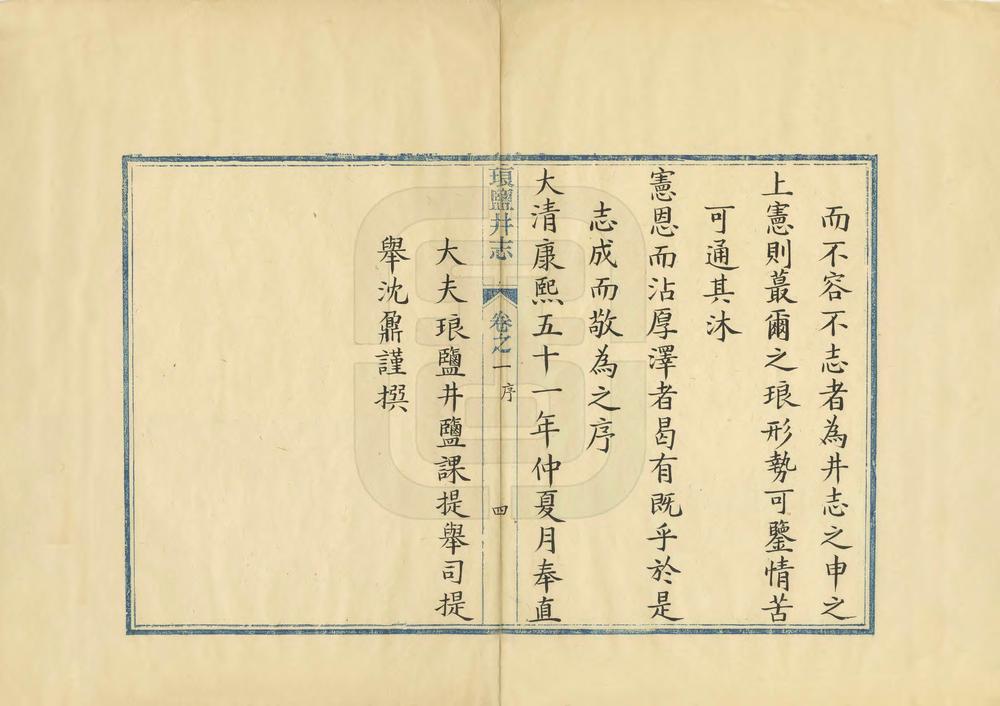 而不容不志者為井志之申之
上憲則蕞爾之琅形勢可鑒情苦
可通其沐
憲恩而沾厚澤者曷有既乎於是
志成而敬為之序
大清康熙五十一年仲夏月奉直
琅鹽井志 卷之一 序 四
大夫琅鹽井鹽課提舉司提
舉沈鼐謹撰